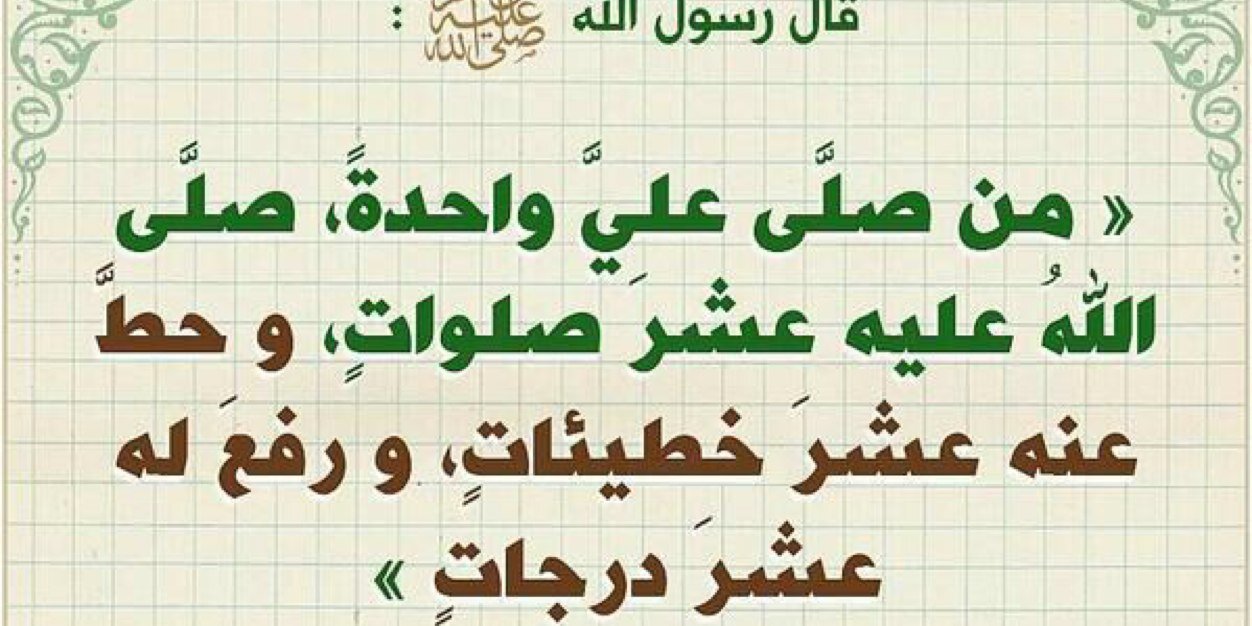 قال رسول الله صلى الله عليه وسلم :
« من صلَّى عليَّ واحدةً، صلَّى
اللهُ عليه عشرَ صلواتٍ، و حطَّ
عنه عشرَ خطيئاتٍ، و رفعَ له
عشرَ درجاتٍ »